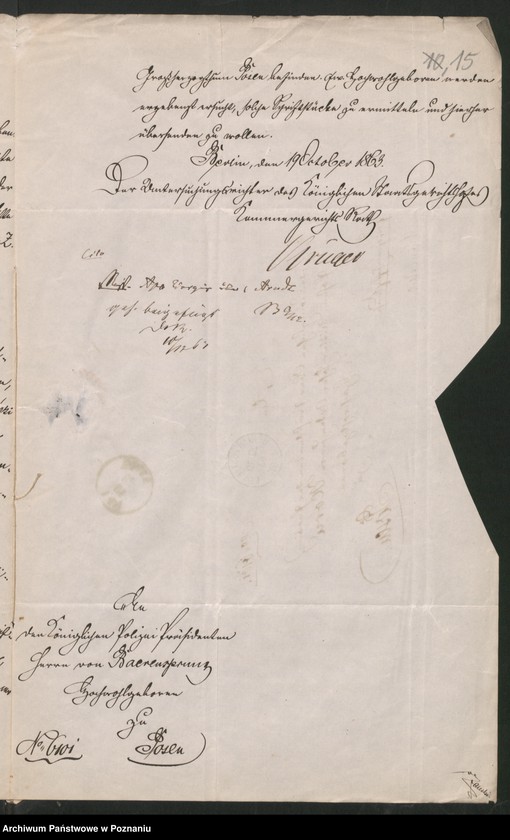 10. 15
Großherzogthum Posen befinden. Ew Hochwohlgeboren werden
ergebenst ersucht, solche Schriftstücke zu ermitteln und hierher
übersenden zu wollen.
Berlin, den 19 October 1863
Der Untersuchungsrichter des Königlichen Staatsgerichtshofes
Kammergerichts Rath
Krüger
Cito
beigefügt
An
den Königlichen Polizei Präsidenten
Herrn von Baerensprung
Hochwohlgeboren
zu
Posen
Archiwum Państwowe w Poznaniu